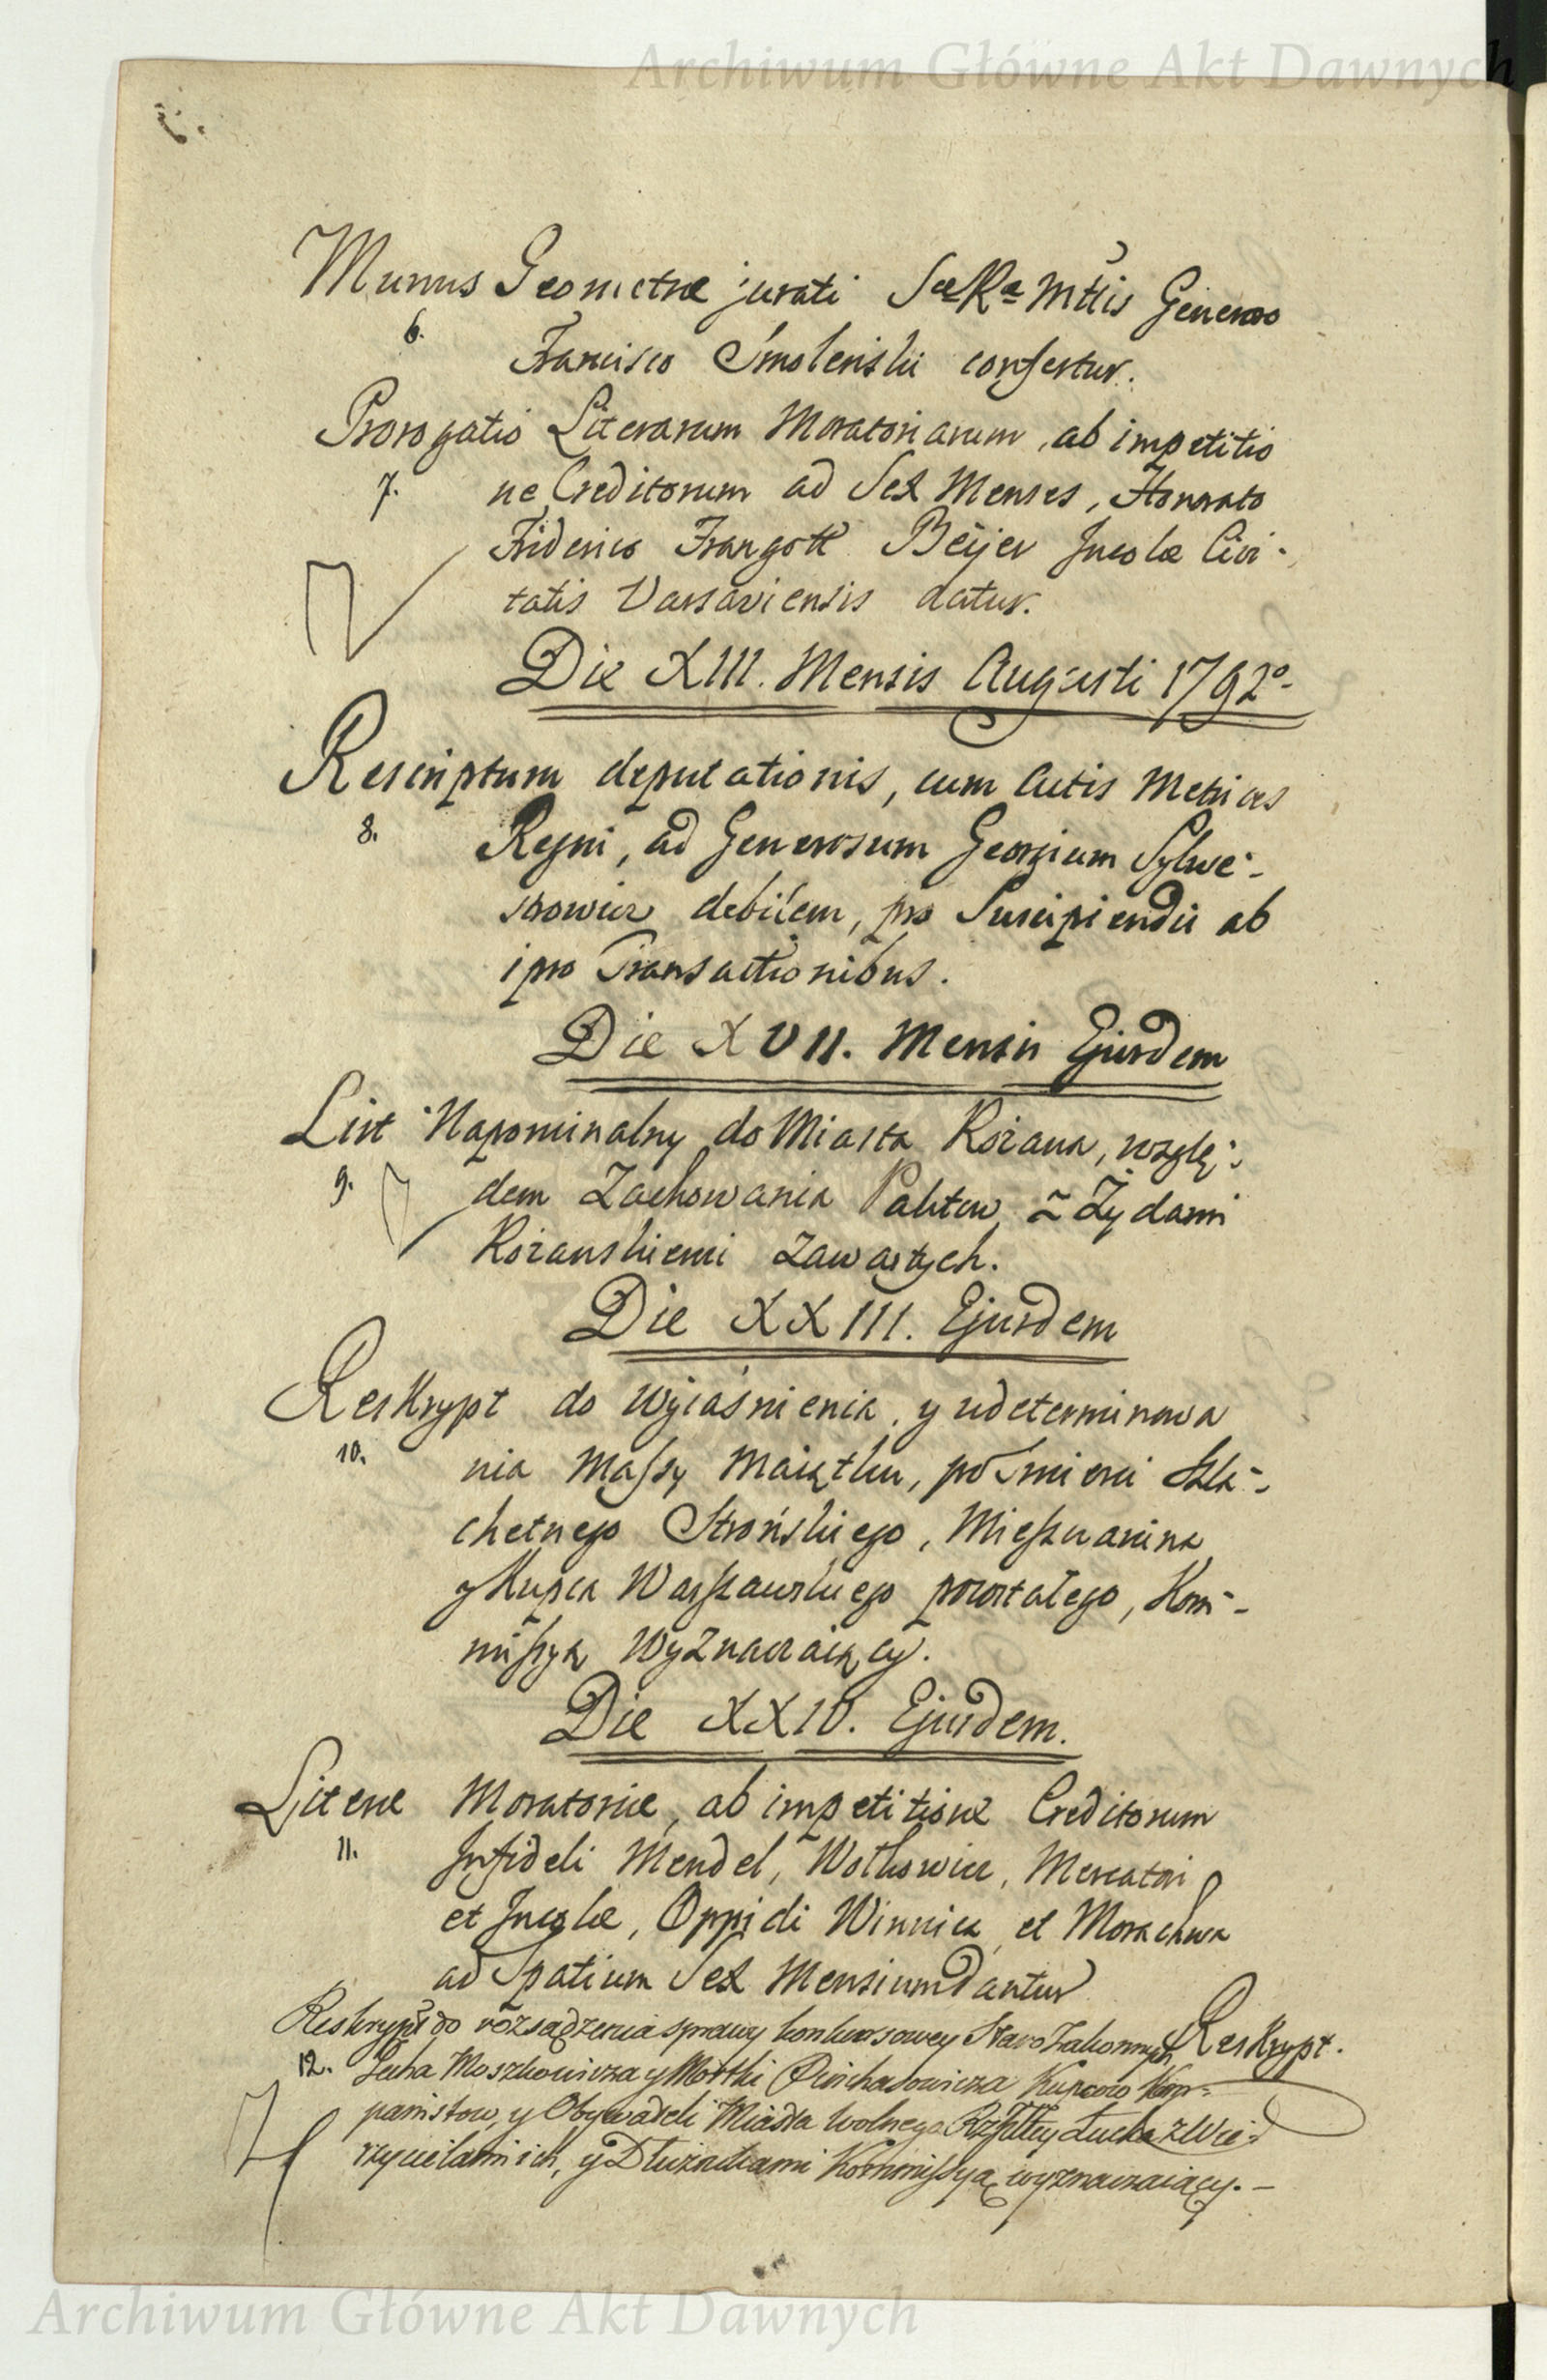 Archiwum Główne Akt Dawnych
Munus Geometræ jurati Sæ Ræ Mttis Generoso
6.
Francisco Smoleński confertur.
Prorogatio Literarum Moratoriarum, ab impetitio
7.
ne Creditorum ad Sex Menses, Honorato
Friderico Traugott Beÿer Incolæ Civi-
tatis Varsaviensis datur.
Die XIII. Mensis Augusti 1792o
Rescriptum deputationis, cum Actis Metrices
8.
Regni, ad Generosum Georgium Sylwe-
strowicz debilem, pro Suscipiendis ab
ipso Transactionibus.
Die XVII. Mensis Ejusdem
List Napominalny do Miasta Rożana, wzglę-
9.
dem Zachowania Paktow z Żydami
Rożanskiemi zawartych.
Die XXIII. Ejusdem
Reskrypt do wyiaśnienia y udeterminowa
10.
nia Massy Maiątku, po Smierci Szla-
chetnego Strońskiego, Mieszczanina
y Kupca Warszawskiego pozostałego, Kom-
missyą wyznaczaiący.
Die XXIV. Ejusdem.
Literæ Moratoriæ, ab impetitione Creditorum
11.
Infideli Mendel, Wolkowicz, Mercatori
et Incolæ, Oppidi Winnica et Morachwa
ad Spatium Sex Mensium Dantur
Reskrypt do rozsądzenia sprawy konkursowey Staro Zakonnych
Reskrypt.
12.
Moszkowicza y Motki Pinchasowicza Kupcow Kom-
panistow, y Obywateli Miasta wolnego Rzpltey Łucka z Wie-
rzycielami ich, y Dłużnikami Kommissyą wyznaczaiący.
Archiwum Główne Akt Dawnych